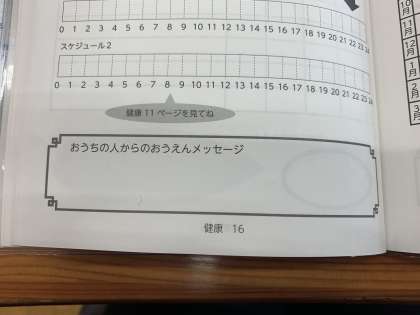 0 1 2 3 4 5 6 7 8 9 10 11 12 13 14 15 16 17 18 19 20 21 22 23 24
スケジュール2
0 1 2 3 4 5 6 7 8 9 10 11 12 13 14 15 16 17 18 19 20 21 22 23 24
健康 11 ページを見てね
おうちの人からのおうえんメッセージ
健康 16
10月
11月
12月
1月
2月
3月